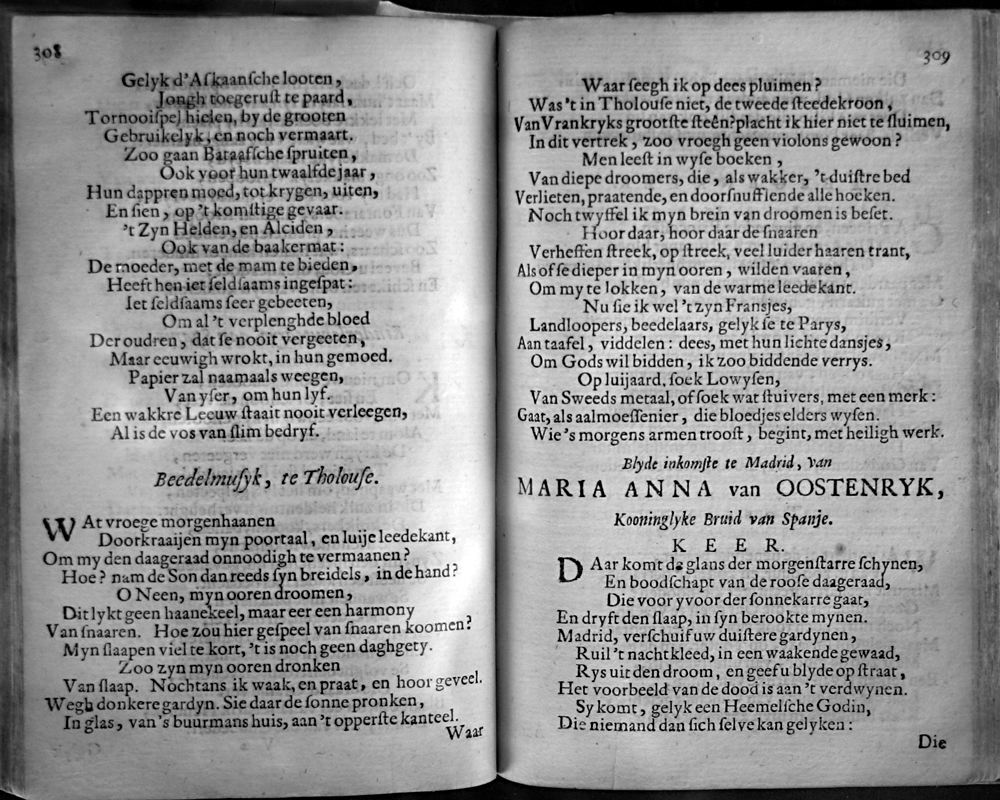 308
Gelyk d'Aſkaanſche looten,
Jongh toegeruſt te paard,
Tornooiſpel hielen, by de grooten
Gebruikelyk, en noch vermaart.
Zoo gaan Bataafſche ſpruiten,
Ook voor hun twaalfde jaar,
Hun dappren moed, tot krygen, uiten,
En ſien, op 't komſtige gevaar.
't Zyn Helden, en Alciden,
Ook van de baakermat:
De moeder, met de mam te bieden,
Heeft hen iet ſeldſaams ingeſpat:
Iet ſeldſaams ſeer gebeeten,
Om al 't verplenghde bloed
Der oudren, dat ſe nooit vergeeten,
Maar eeuwigh wrokt, in hun gemoed.
Papier zal naamaals weegen,
Van yſer, om hun lyf.
Een wakkre Leeuw ſtaait nooit verleegen,
Al is de vos van ſlim bedryf.
Beedelmuſyk, te Tholouſe.
WAt vroege morgenhaanen
Doorkraaijen myn poortaal, en luije leedekant,
Om my den daageraad onnoodigh te vermaanen?
Hoe? nam de Son dan reeds ſyn breidels, in de hand?
O Neen, myn ooren droomen,
Dit lykt geen haanekeel, maar eer een harmony
Van ſnaaren. Hoe zou hier geſpeel van ſnaaren koomen?
Myn ſlaapen viel te kort, 't is noch geen daghgety.
Zoo zyn myn ooren dronken
Van ſlaap. Nochtans ik waak, en praat, en hoor geveel.
Wegh donkere gardyn. Sie daar de ſonne pronken,
In glas, van 's buurmans huis, aan 't opperſte kanteel.
Waar
309
Waar ſeegh ik op dees pluimen?
Was 't in Tholouſe niet, de tweede ſteedekroon,
Van Vrankryks grootſte ſteên? placht ik hier niet te ſluimen,
In dit vertrek, zoo vroegh geen violons gewoon?
Men leeſt in wyſe boeken,
Van diepe droomers, die, als wakker, 't duiſtre bed
Verlieten, praatende, en doorſnuffiende alle hoeken.
Noch twyffel ik myn brein van droomen is beſet.
Hoor daar, hoor daar de ſnaaren
Verheffen ſtreek, op ſtreek, veel luider haaren trant,
Als of ſe dieper in myn ooren, wilden vaaren,
Om my te lokken, van de warme leedekant.
Nu ſie ik wel 't zyn Fransjes,
Landloopers, beedelaars, gelyk ſe te Parys,
Aan taafel, viddelen: dees, met hun lichte dansjes,
Om Gods wil bidden, ik zoo biddende verrys.
Op luijaard, ſoek Lowyſen,
Van Sweeds metaal, of ſoek wat ſtuivers, met een merk:
Gaat, als aalmoeſſenier, die bloedjes elders wyſen.
Wie 's morgens armen trooſt, begint, met heiligh werk.
Blyde inkomſte te Madrid, van
MARIA ANNA van OOSTENRYK,
Kooninglyke Bruid van Spanje.
KEER.
DAar komt de glans der morgenſtarre ſchynen,
En boodſchapt van de rooſe daageraad,
Die voor yvoor der ſonnekarre gaat,
En dryft den ſlaap, in ſyn berookte mynen.
Madrid, verſchuif uw duiſtere gardynen,
Ruil 't nachtkleed, in een waakende gewaad,
Rys uit den droom, en geef u blyde op ſtraat,
Het voorbeeld van de dood is aan 't verdwynen.
Sy komt, gelyk een Heemelſche Godin,
Die niemand dan ſich ſelve kan gelyken:
Die